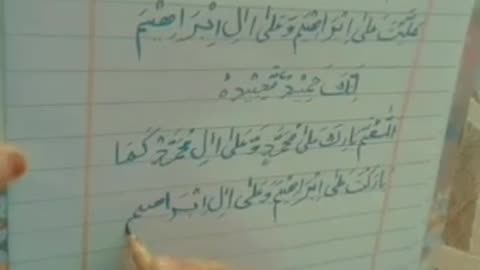 صَلَّيْتَ عَلٰى اِبْرَاهِيْمَ وَعَلٰى اٰلِ اِبْرَاهِيْمَ
اِنَّكَ حَمِيْدٌ مَّجِيْدٌ
اَللّٰهُمَّ بَارِكْ عَلٰى مُحَمَّدٍ وَّعَلٰى اٰلِ مُحَمَّدٍ كَمَا
بَارَكْتَ عَلٰى اِبْرَاهِيْمَ وَعَلٰى اٰلِ اِبْرَاهِيم